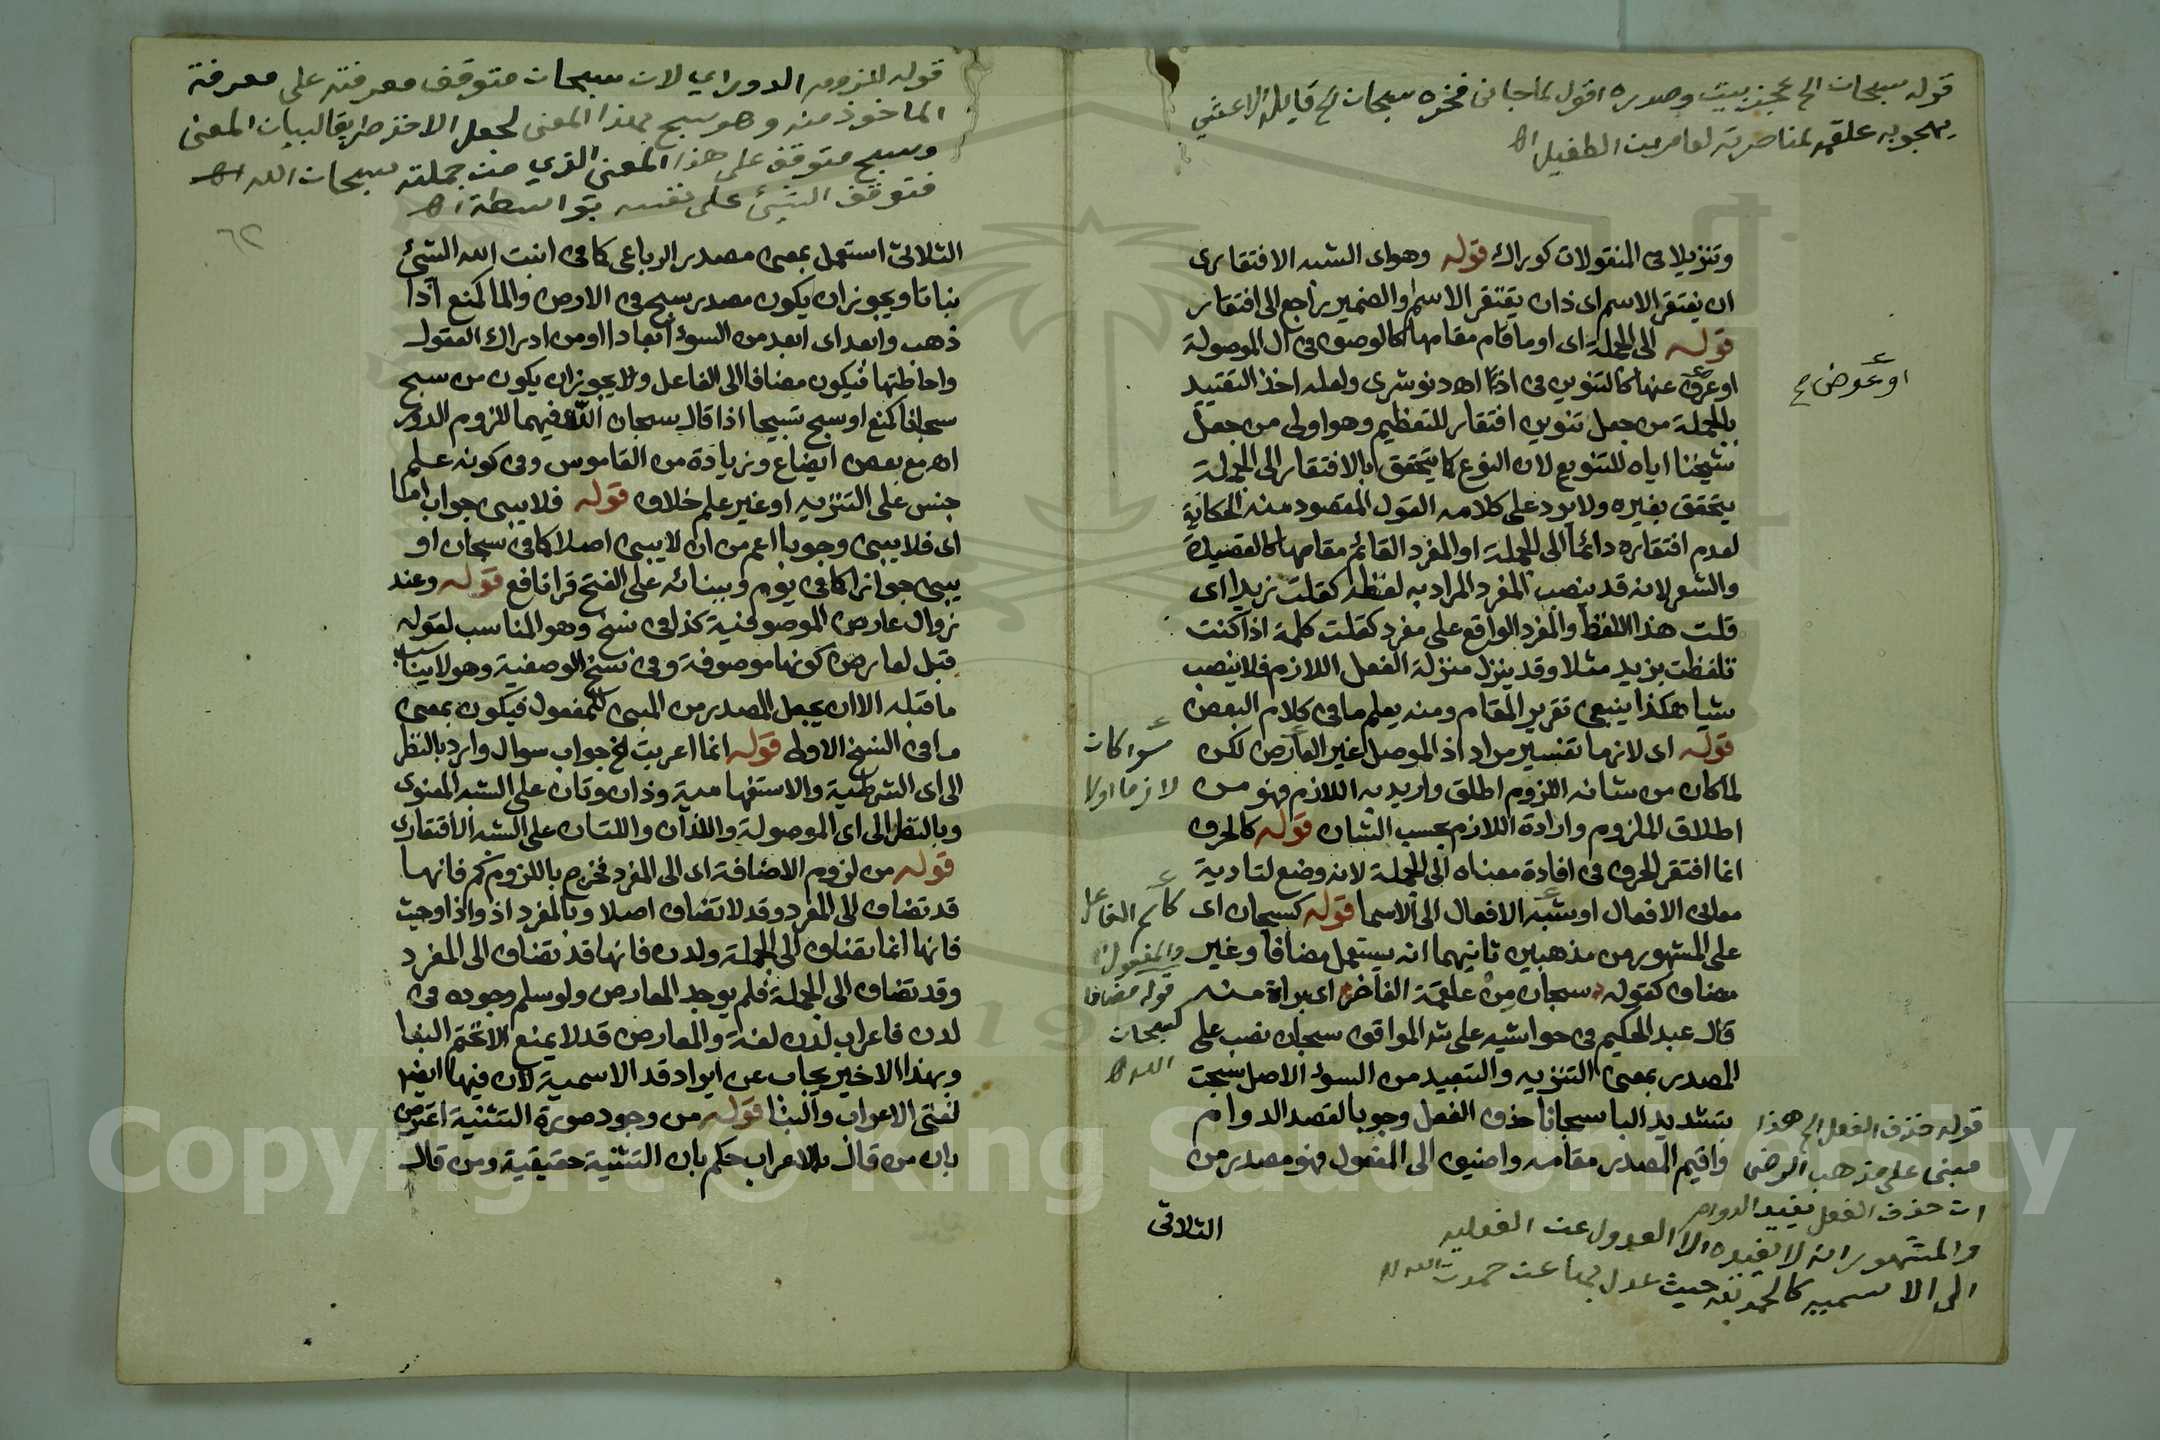 قوله سبحان الخ عجز بيت وصدره اقول لما جاني فخره سبحان الخ قايله الاعشى
يهجو به علقمة لمناصرته لعامر بن الطفيل اه
وتنزيلا في المنقولات كوراك قوله وهو اى الشبه الافتقارى
ان يفتقر الاسم اى ذان يفتقر الاسم والضمير راجع الى افتقار
قوله الى الجملة اى او ما قام مقامها كالوصف في ال الموصولة
او عوض عنها كالتنوين في اذ اه دنوشرى ولعله اخذ التقييد
بالجملة من جعل تنوين افتقار للتعظيم وهو اولى من جعل
شيخنا اياه للتنويع لان النوع كما يتحقق بالافتقار الى الجملة
يتحقق بغيره ولا يرد على كلامه القول المقصود منه الحكاية
لعدم افتقاره دائما الى الجملة او المفرد القائم مقامها كالقصيدة
والشعر لانه قد ينصب المفرد المراد به لفظه كقلت زيدا اى
قلت هذا اللفظ والمفرد الواقع على مفرد كقلت كلمة اذا كنت
تلفظت بزيد مثلا وقد ينزل منزلة الفعل اللازم فلا ينصب
شيا هكذا ينبغى تقرير المقام ومنه يعلم ما في كلام البعض
قوله اى لازما تفسير مراد اذ الموصل غير العارض لكن
لما كان من شانه اللزوم اطلق واريد به اللازم فهو من
اطلاق الملزوم وارادة اللازم بحسب الشان قوله كالحرف
انما افتقر الحرف في افادة معناه الى الجملة لانه وضع لتادية
معانى الافعال او شبه الافعال الى الاسما قوله كسبحان اى
على المشهور من مذهبين ثانيهما انه يستعمل مضافا وغير
مضاف كقوله سبحان من علقمة الفاخر اى براة منه
قال عبد الحكيم في حواشيه على شر المواقف سبحان نصب على
المصدر بمعنى التنزيه والتبعيد من السوء الاصل سبحت
بتشديد البا سبحانا حذف الفعل وجوبا لقصد الدوام
واقيم المصدر مقامه واضيف الى المفعول فهو مصدر من
الثلاثى
او عوض صح
سواكان
لازما او لا
كاسم الفاعل
والمفعول اه
قوله مضافا
كسبحان
الله اه
قوله حذف الفعل الخ هذا
مبنى على مذهب الرضى
ان حذف الفعل يفيد الدوام
والمشهور انه لا يفيده الا العدول عن الفعلية
الى الاسمية كالحمد لله حيث عدل بها عن حمدت الله اه
قوله للزوم الدور اي لان سبحان متوقف معرفته على معرفة
الماخوذ منه وهو سبح بهذا المعنى لجعل الاخذ طريقا لبيان المعنى
وسبح متوقف على هذا المعنى الذي من جملته سبحان الله اه
فتوقف الشئ على نفسه بواسطة اه
٦٢
الثلاثى استعمل بمعنى مصدر الرباعى كما في انبت الله الشئ
نباتا ويجوز ان يكون مصدر سبح في الارض والما كمنع اذا
ذهب وابعد اى ابعد من السوء ابعادا او من ادراك العقول
واحاطتها فيكون مضافا الى الفاعل ولا يجوز ان يكون من سبح
سبحانا كمنع او سبح تسبيحا اذا قال سبحان الله فيهما للزوم الدور
اه مع بعض ايضاح وزيادة من القاموس وفي كونه علم
جنس على التنزيه او غير علم خلاف قوله فلا يبنى جواب اما
اى فلا يبنى وجوبا اعم من ان لا يبنى اصلا كما في سبحان او
يبنى جوازا كما في يوم وببنائه على الفتح قرا نافع قوله وعند
زوال عارض الموصوفية كذا في نسخ وهو المناسب لقوله
قبل لعارض كونها موصوفة وفي نسخ الوصفية وهو لا يناسب
ما قبله الا ان يجعل المصدر من المبنى للمفعول فيكون بمعنى
ما في النسخ الاولى قوله انما اعربت الخ جواب سوال وارد بالنظر
الى اى الشرطية والاستفهامية وذان وتان على الشبه المعنوى
وبالنظر الى اى الموصولة واللذان واللتان على الشبه الافتقارى
قوله من لزوم الاضافة اى الى المفرد فخرج باللزوم كم فانها
قد تضاف الى المفرد وقد لا تضاف اصلا وبالمفرد اذ واذا وحيث
فانها انما تضاف الى الجملة ولدن فانها قد تضاف الى المفرد
وقد تضاف الى الجملة فلم يوجد المعارض ولو سلم وجوده في
لدن فاعراب لدن لغة والمعارض قد لا يمنع تحتم البنا
وبهذا الاخير يجاب عن ايراد قد الاسمية لان فيها ايضا
لغتى الاعراب والبنا قوله من وجود صورة التثنية اعترض
بان من قال بالاعراب حكم بان التثنية حقيقية ومن قال
Copyright © King Saud University